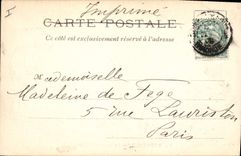 I
Imprimé
CARTE POSTALE
Ce côté est exclusivement réservé à l'adresse
Mademoiselle
Madeleine de Foge
5 rue Lauriston
Paris